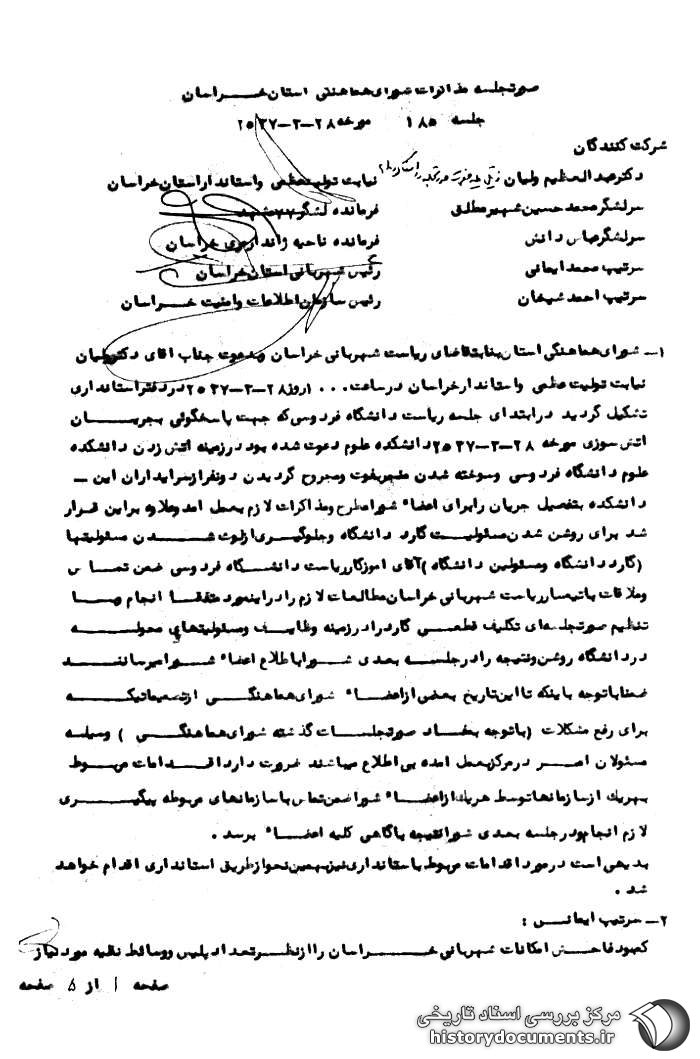 صورتجلسه مذاکرات شورای هماهنگی استان خراسان
جلسه ۱۸۵ مورخه ۲۸-۳-۲۵۳۷
شرکت کنندگان
دکتر عبدالعظیم ولیان نیابت تولیت عظمی و استاندار استان خراسان
سرلشگر محمد حسین شهیر مطلق فرمانده لشگر ۷۷ مشهد
سرلشگر عباس دانش فرمانده ناحیه ژاندارمری خراسان
سرتیپ محمد ایمانی رئیس شهربانی استان خراسان
سرتیپ احمد شیخان رئیس سازمان اطلاعات و امنیت خراسان
۱- شورای هماهنگی استان بنا بتقاضای ریاست شهربانی خراسان و بدعوت جناب اقای دکتر ولیان
نیابت تولیت عظمی و استاندار خراسان در ساعت ۱۰۰۰ روز ۲۸-۳-۲۵۳۷ در دفتر استانداری
تشکیل گردید در ابتدای جلسه ریاست دانشگاه فردوسی که جهت پاسخگوئی بجریان
اتش سوزی مورخه ۲۸-۳-۲۵۳۷ دانشکده علوم دعوت شده بود در زمینه اتش زدن دانشکده
علوم دانشگاه فردوسی و سوخته شدن منجر بفوت و مجروح گردیدن دو نفر از سرایداران این -
دانشکده بتفصیل جریان را برای اعضاء شورا مطرح و مذاکرات لازم بعمل امد و علاوه براین قرار
شد برای روشن شدن مسئولیت گارد دانشگاه و جلوگیری از لوث شدن مسئولیتها
(گارد دانشگاه و مسئولین دانشگاه) آقای اموزگار ریاست دانشگاه فردوسی ضمن تماس
و ملاقات با تیمسار ریاست شهربانی خراسان مطالعات لازم را در اینمورد متفقا انجام و با
تنظیم صورتجلسه ای تکلیف قطعی گارد را در زمینه وظایف و مسئولیتهای محوله
در دانشگاه روشن و نتیجه را در جلسه بعدی شورا باطلاع اعضاء شورا میرسانند
ضمنا با توجه باینکه تا این تاریخ بعضی از اعضاء شورای هماهنگی از تصمیماتیکه
برای رفع مشکلات (با توجه بمفاد صورتجلسات گذشته شورای هماهنگی) وسیله
مسئولان امر در مرکز بعمل امده بی اطلاع میباشند ضرورت دارد اقدامات مربوط
بهریک از سازمانها توسط هریک از اعضاء شورا ضمن تماس با سازمانهای مربوطه پیگیری
لازم انجام و در جلسه بعدی شورا نتیجه باگاهی کلیه اعضاء برسد .
بدیهی است در مورد اقدامات مربوط باستانداری نیز بهمین نحو از طریق استانداری اقدام خواهد
شد .
۲- سرتیپ ایمانی :
کمبود فاحش امکانات شهربانی خراسان را از نظر تعداد پلیس و وسائط نقلیه مورد نیاز
صفحه ۱ از ۵ صفحه
مرکز بررسی اسناد تاریخی
historydocuments.ir